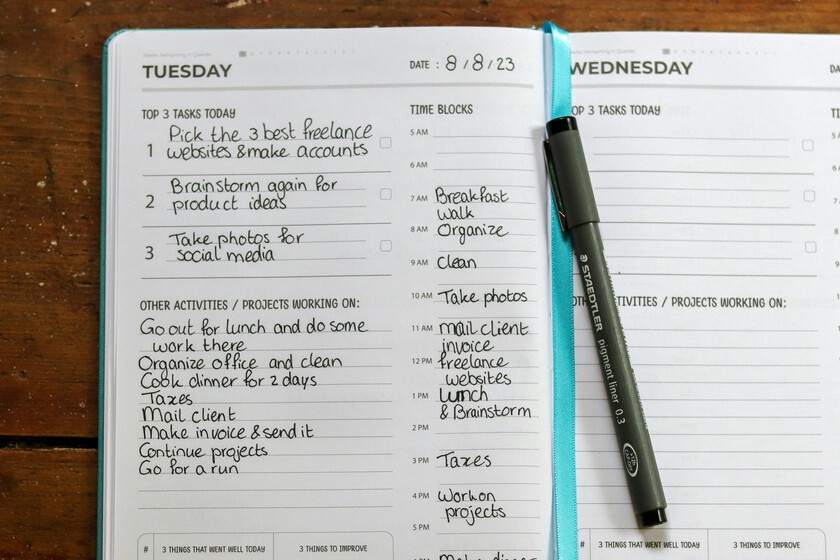 TUESDAY
DATE : 8/8/23
TOP 3 TASKS TODAY
1 Pick the 3 best freelance
websites & make accounts
2 Brainstorm again for
product ideas
3 Take photos for
social media
OTHER ACTIVITIES / PROJECTS WORKING ON:
Go out for lunch and do some
work there
Organize office and clean
Cook dinner for 2 days
Taxes
Mail client
Make invoice & send it
Continue projects
Go for a run
# 3 THINGS THAT WENT WELL TODAY 3 THINGS TO IMPROVE
TIME BLOCKS
5 AM
6 AM
7 AM Breakfast
walk
8 AM Organize
9 AM Clean
10 AM Take photos
11 AM Mail client
invoice
12 PM freelance
websites
1 PM Lunch
& Brainstorm
2 PM
3 PM Taxes
4 PM Work on
projects
5 PM
WEDNESDAY
TOP 3 TASKS TODAY
ACTIVITIES / PROJECTS WORKING ON:
# 3 THINGS THAT WENT WELL TODAY 3 THINGS TO IMPROVE
STAEDTLER pigment liner 0.3